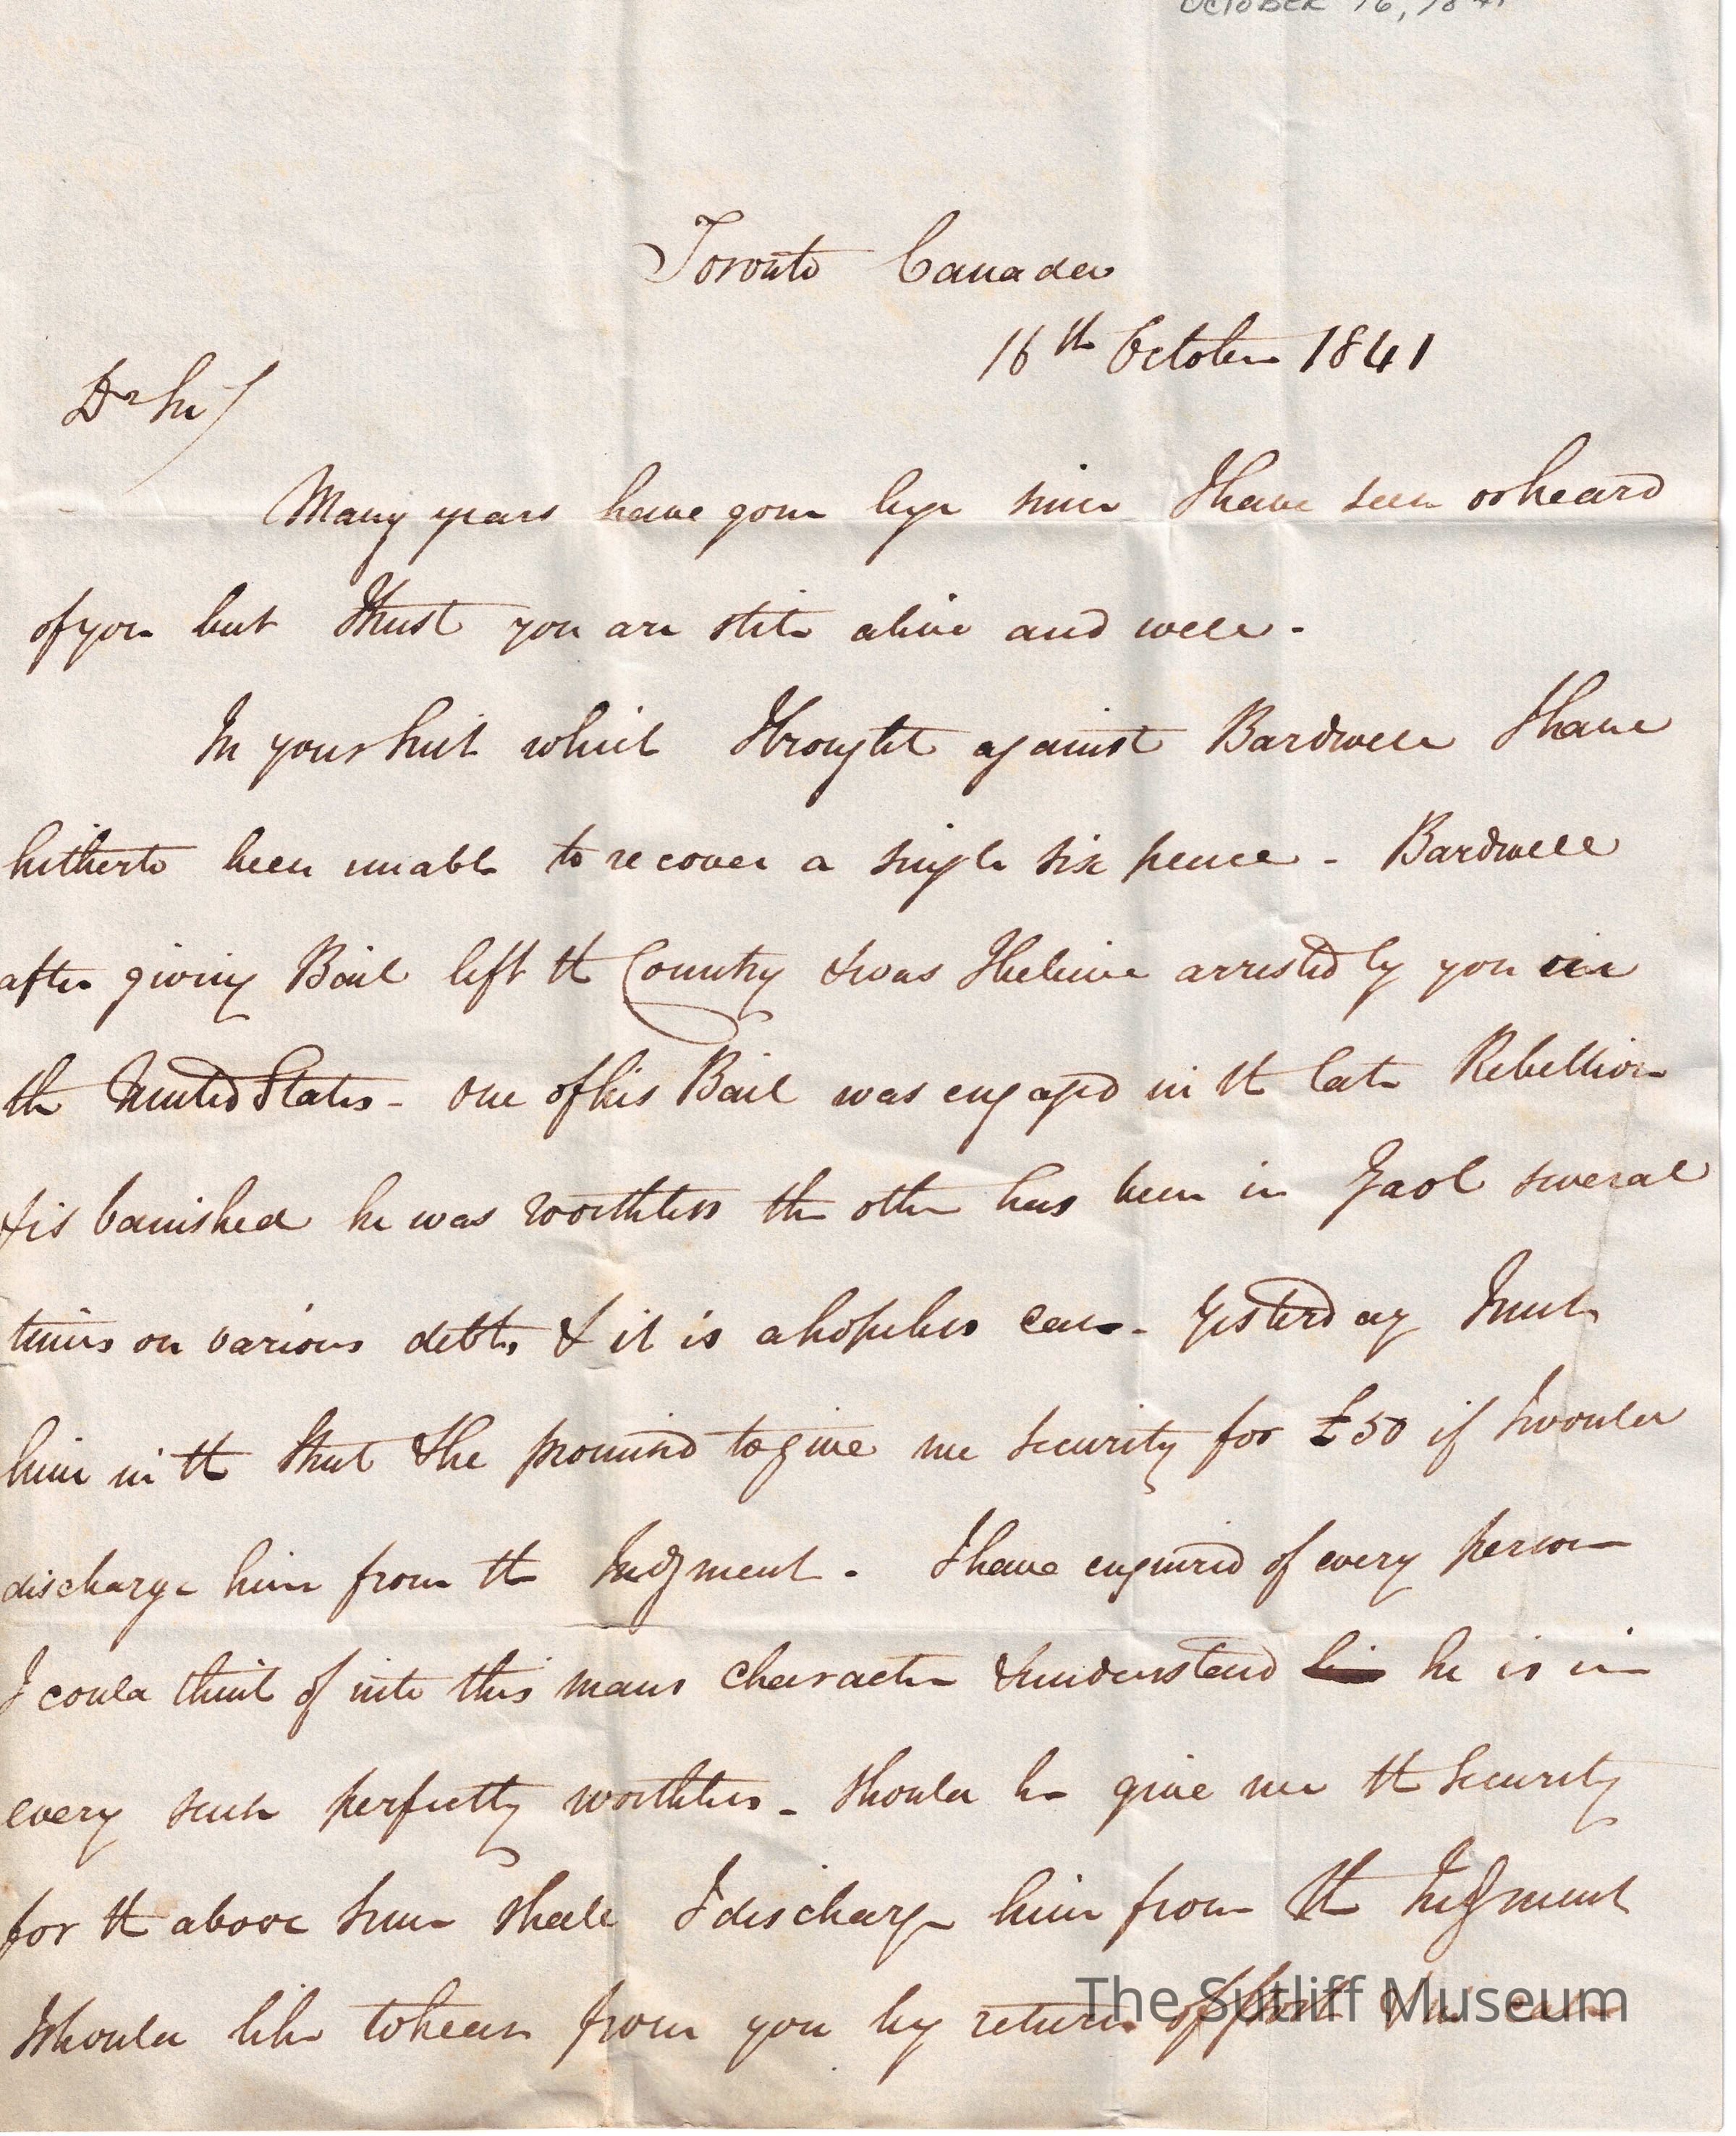 OCTOBER 16, 1841
Toronto Canada
16th October 1841
Dr Sir/
Many years have gone bye since I have seen or heard
of you but I trust you are still alive and well -
In your suit which I brought against Bardwell I have
hitherto been unable to recover a single six pence - Bardwell
after giving Bail left the Country & was I believe arrested by you in
the United States - One of his Bail was engaged in the late Rebellion
& is banished he was worthless the other has been in Gaol several
times on various debts, & it is a hopeless case - Yesterday I met
him in the Street & he promised to give me security for £50 if I would
discharge him from the Judgment - I have enquired of every person
I could think of into this mans character & understand he is in
every sense perfectly worthless - Should he give me the Security
for the above sum shall I discharge him from the Judgment
I should like to hear from you by return of Post
The Sutliff Museum